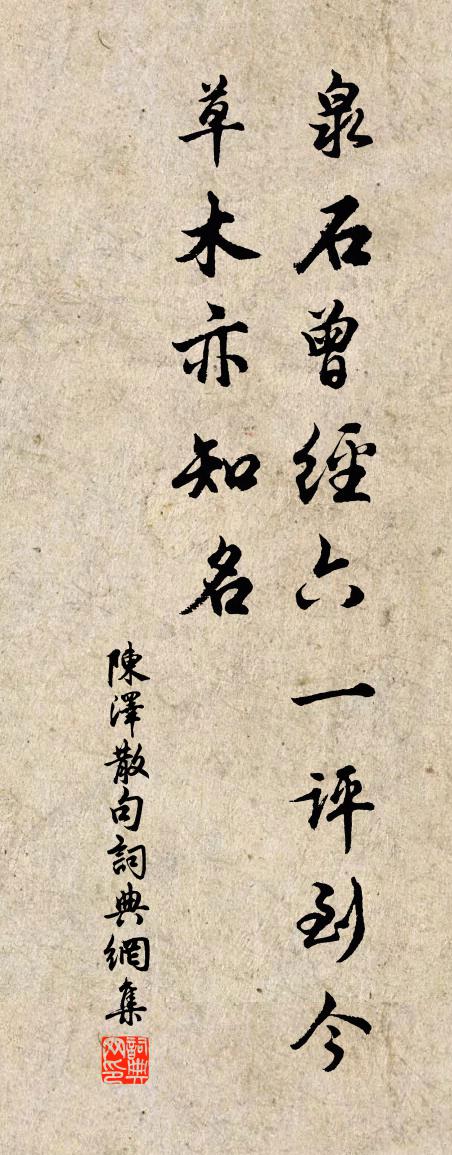 泉石曾經六一評到今
草木亦知名
陳澤散句詞典網集
詞典網印